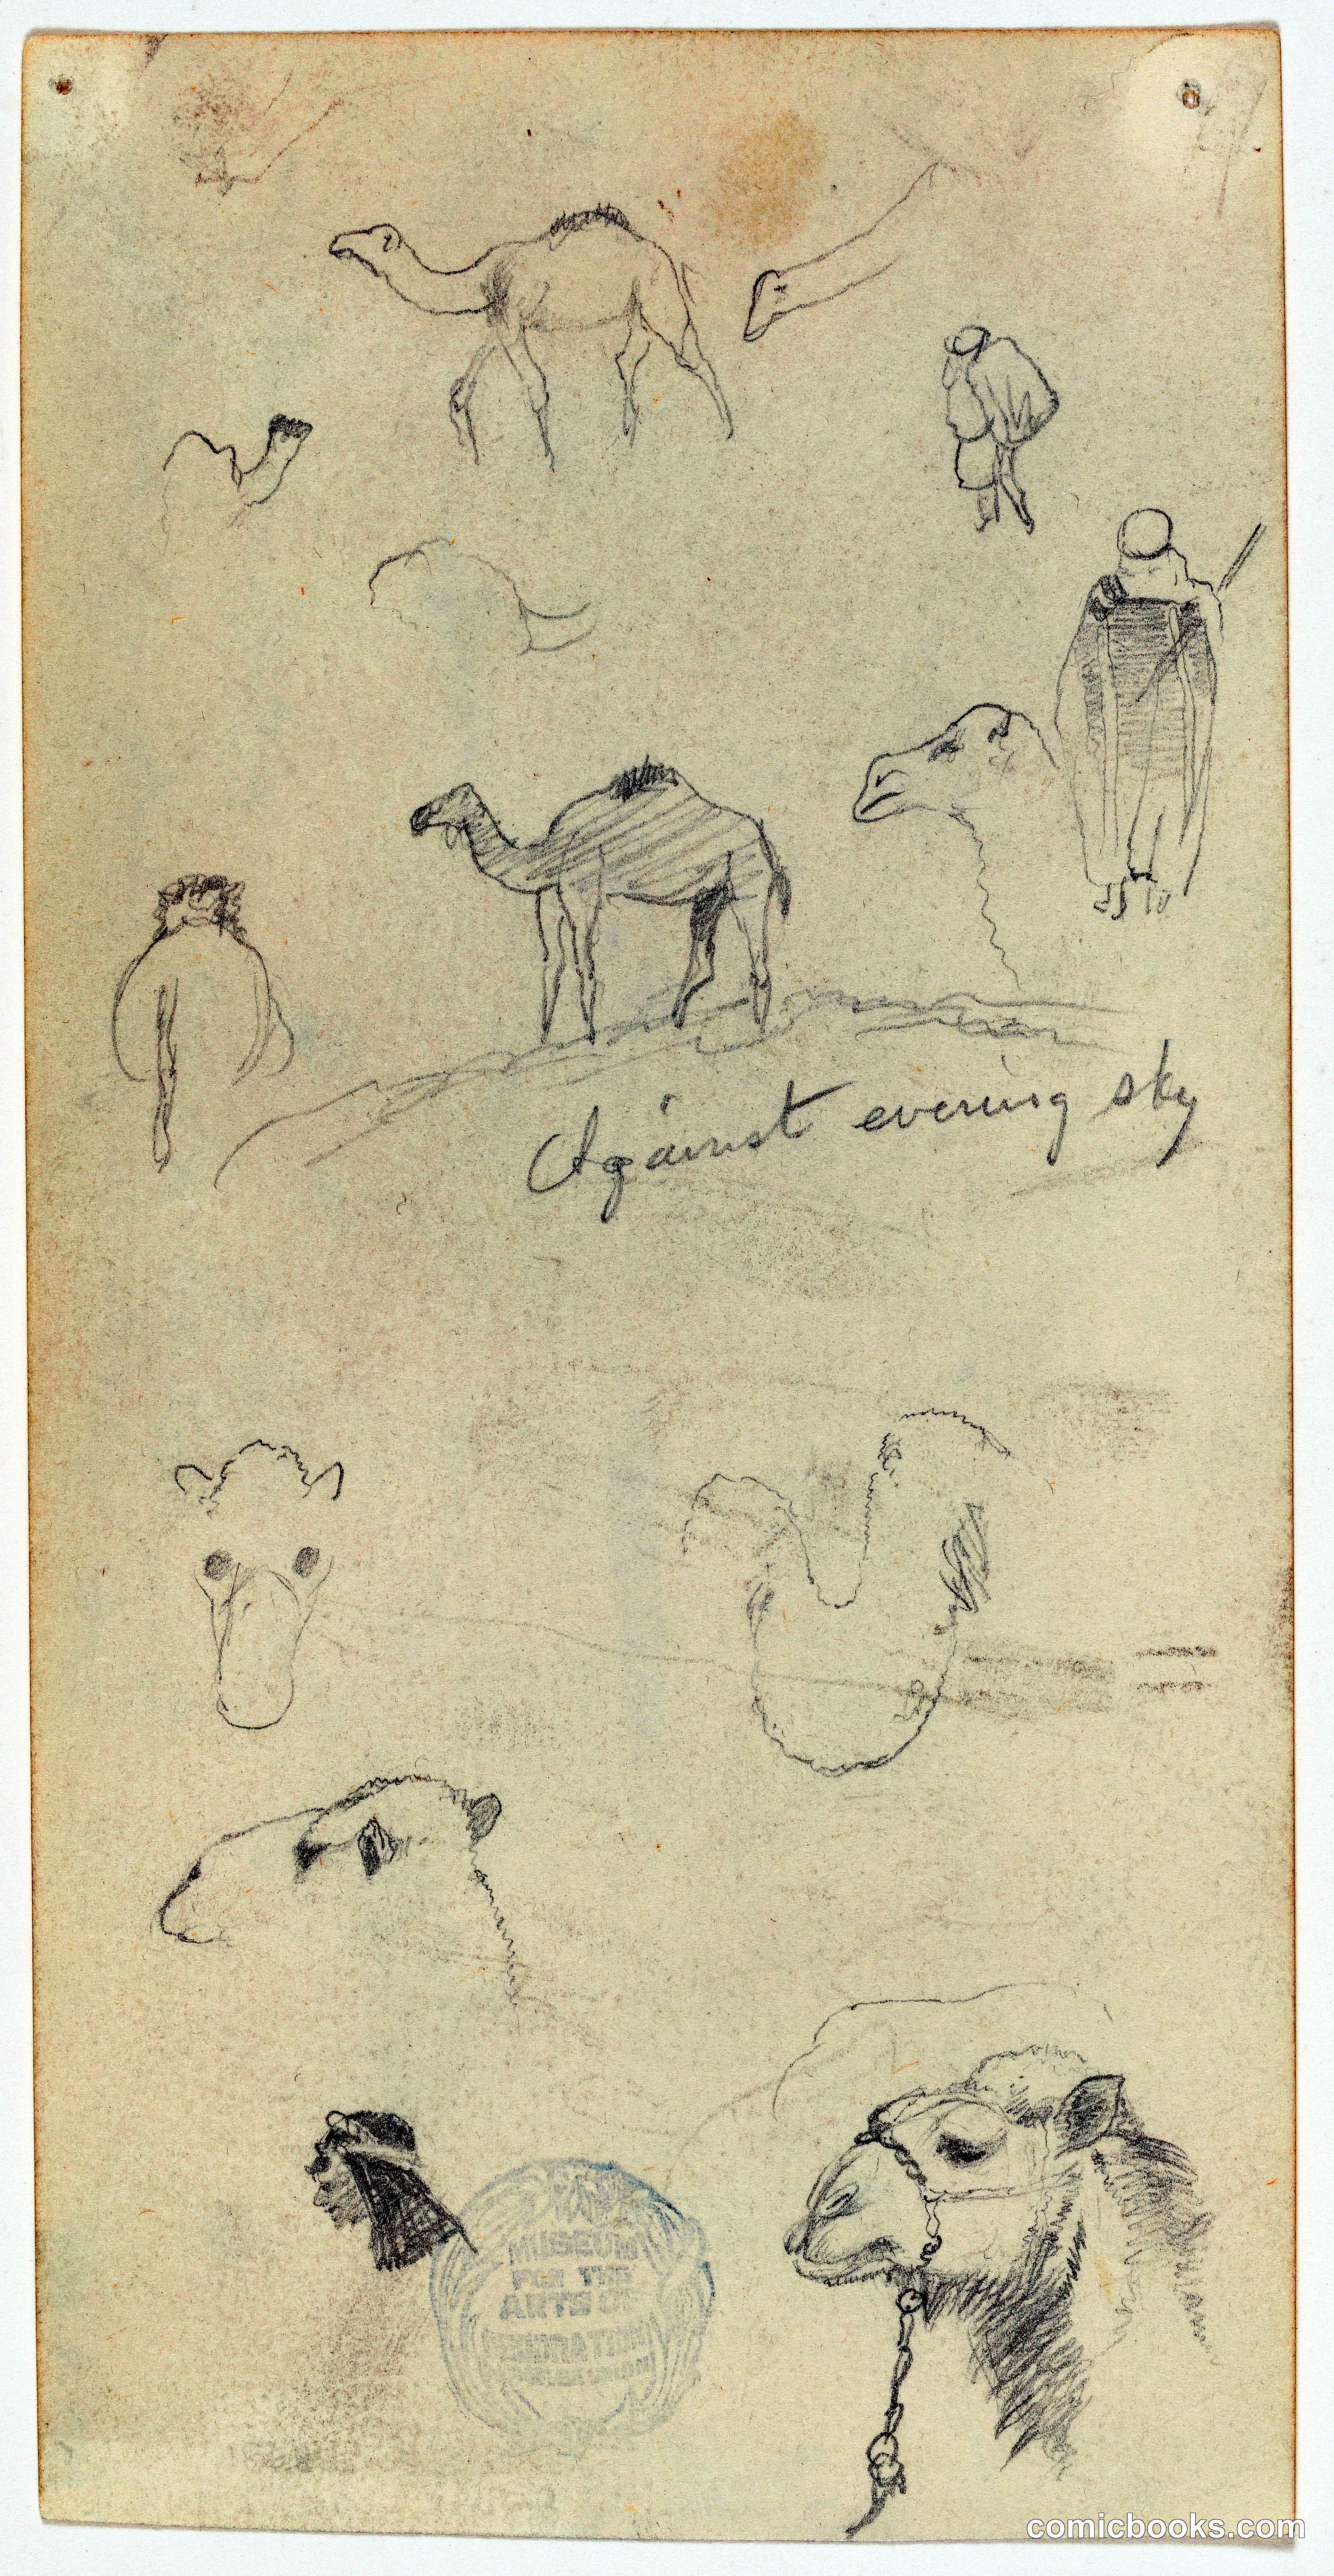 Against evening sky
MUSEUM
FOR THE
ARTS OF
DECORATION
comicbooks.com